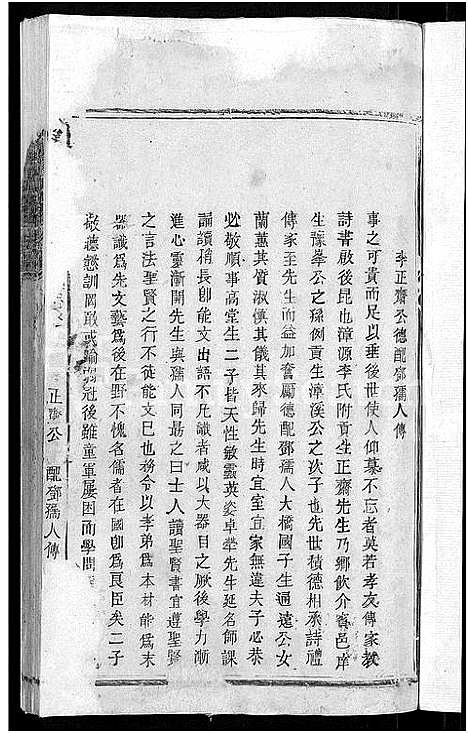 李正齋公德配鄧孺人傳
事之可貴而足以垂後世使人仰慕不忘者莫若孝友傳家教
詩書啟後昆也漳源李氏附貢生正齋先生乃鄉飲介賓邑庠
生豫峯公之孫例貢生漳溪公之次子也先世積德相承詩禮
傳家至先生而益加奮勵德配鄧孺人大橋國子生通遠公女
蘭蕙其質淑慎其儀其來歸先生時宜室宜家無違夫子必恭
必敬順事高堂生二子皆天性敏靈英姿卓犖先生延名師課
誦讀稍長卽能文出語不凡識者咸以大器目之厥後學力漸
進心靈漸開先生與孺人同勗之曰士人讀聖賢書宜遵聖賢
之言法聖賢之行不徒能文巳也務令以孝弟爲本材能爲末
器識爲先文藝爲後在野不愧名儒者在國卽爲良臣矣二子
敬聽懸訓罔敢或踰弱冠後雖童軍屢困而學問
正齋公 配鄧孺人傳